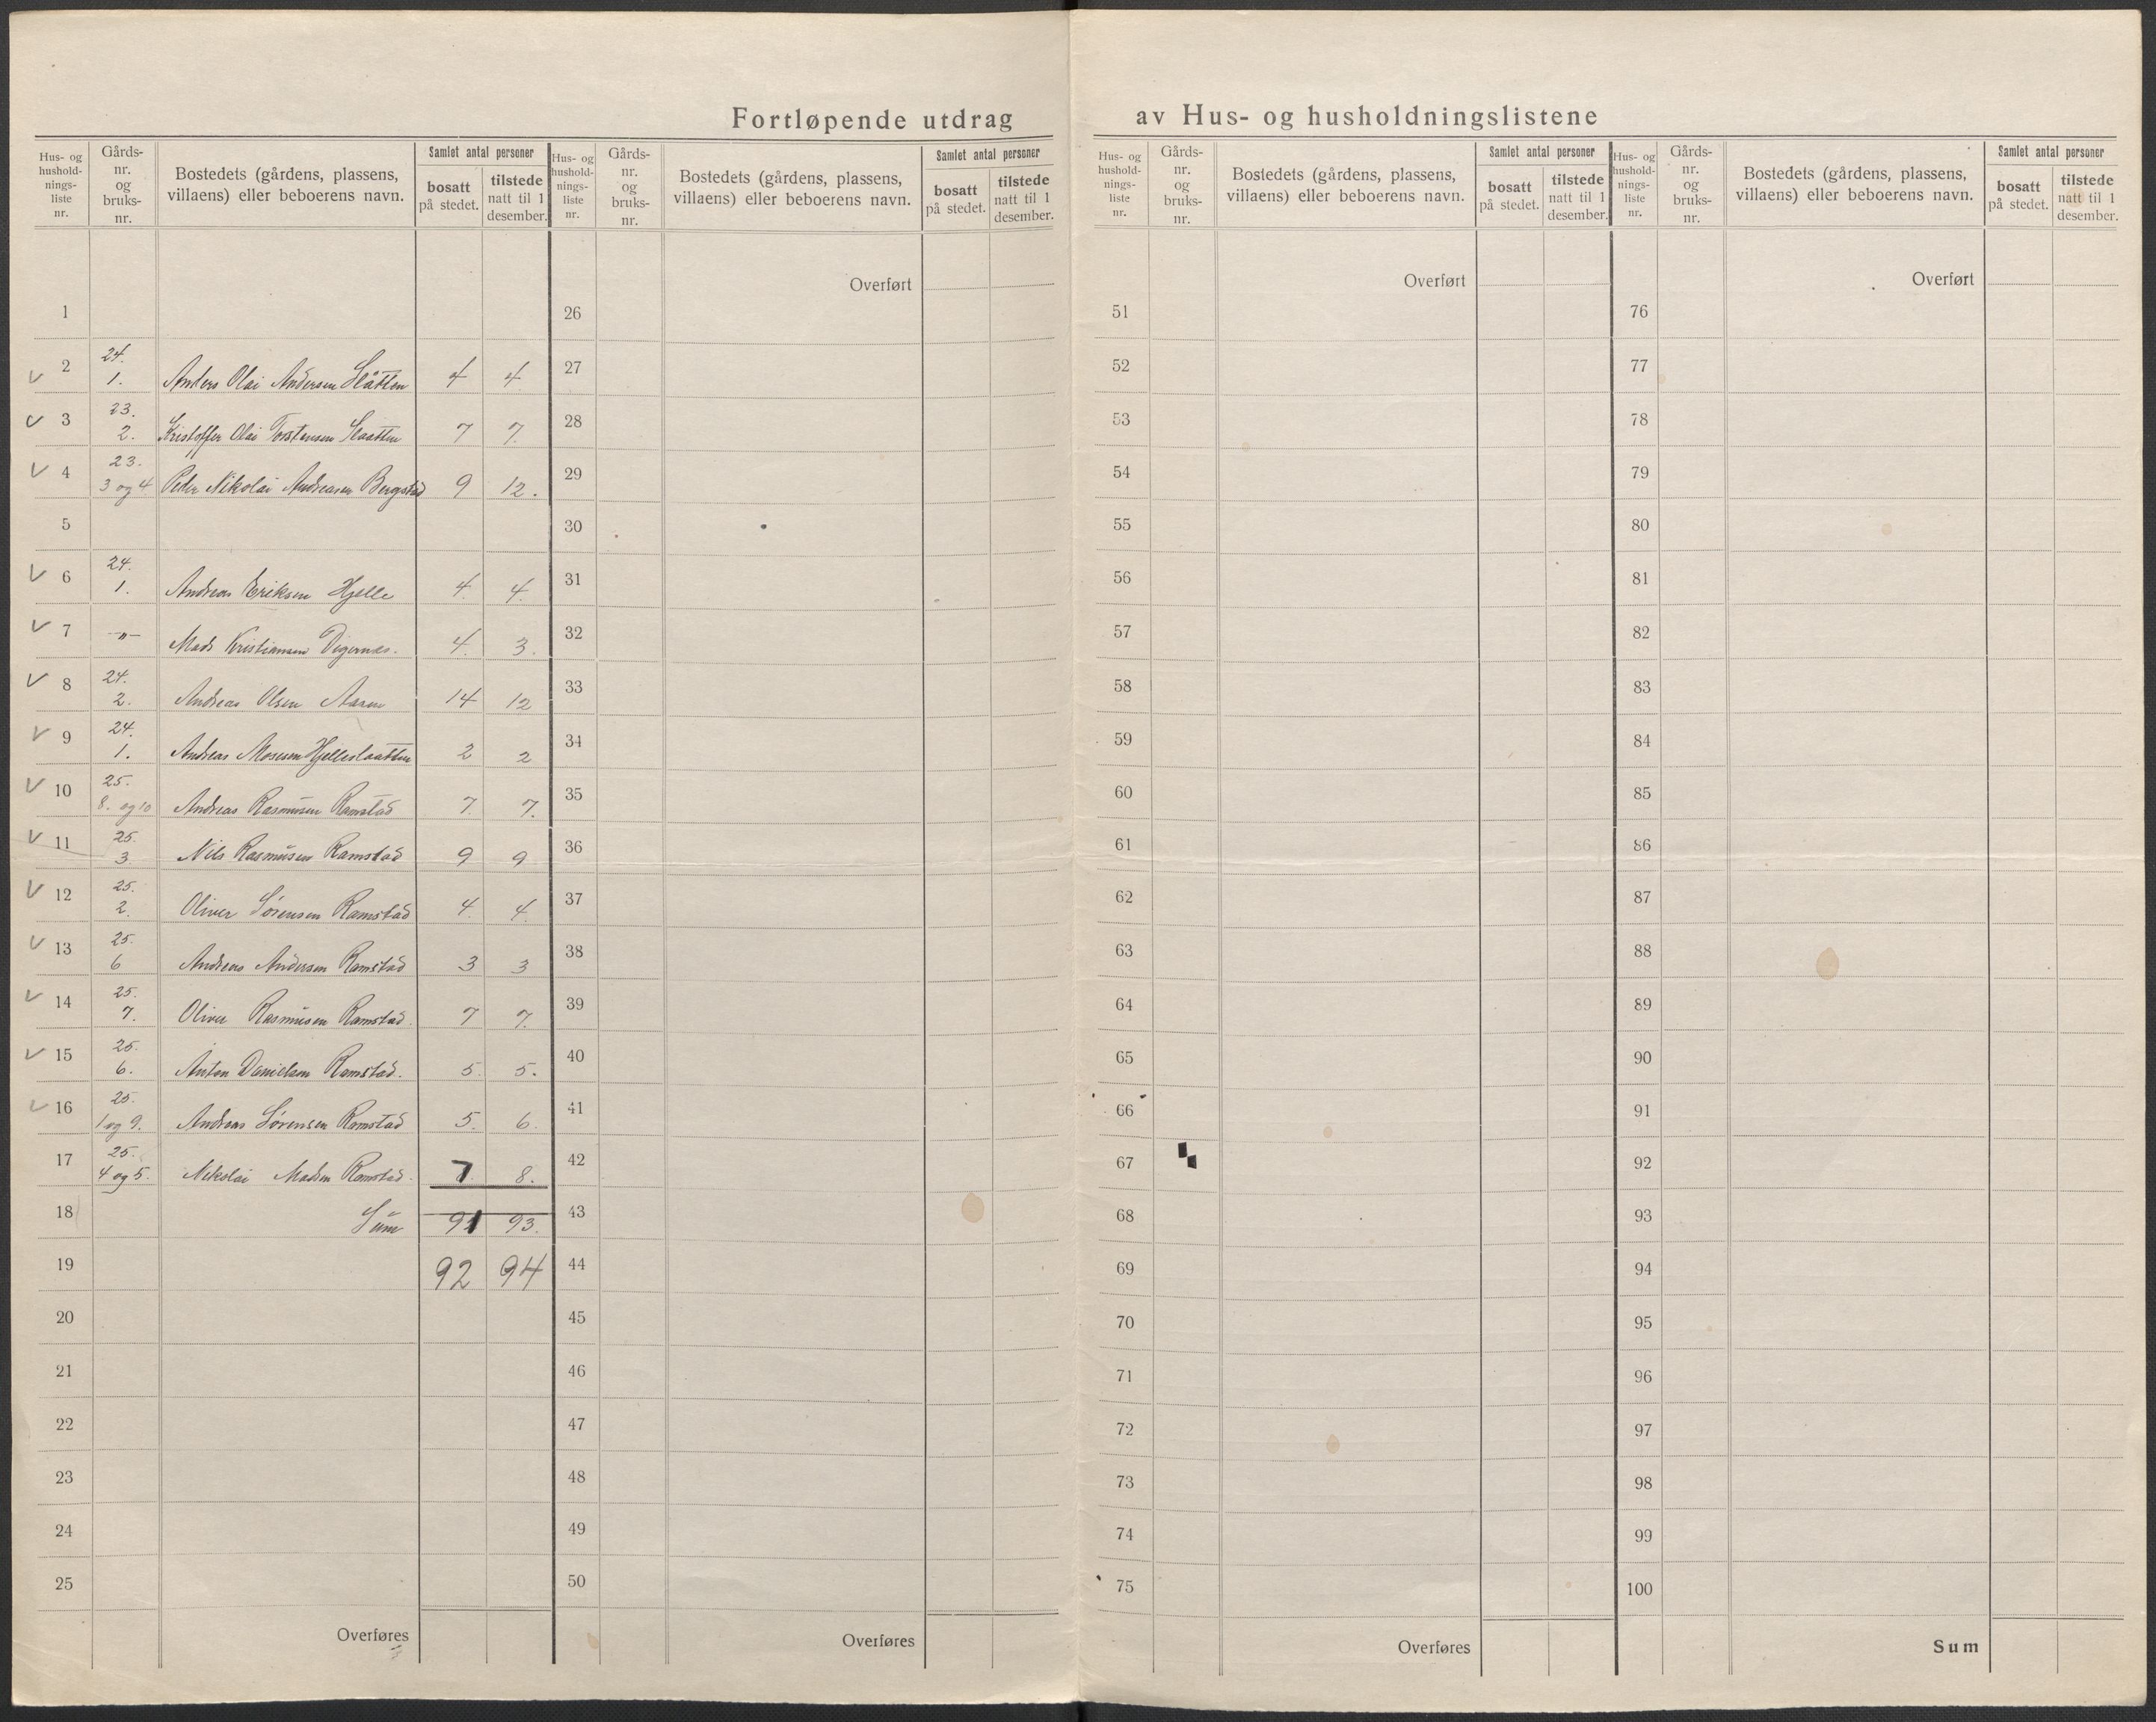 Fortløpende utdrag av Hus- og husholdningslistene
Hus- og hushold-nings-liste nr. | Gårds-nr. og bruks-nr. | Bostedets (gårdens, plassens, villaens) eller beboerens navn. | Samlet antal personer | bosatt på stedet. | tilstede natt til 1 desember.
1
2 24. 1. Anders Olai Andersen Slåtten 4 4
3 23. 2. Kristoffer Olai Torstensen Slaatten 7 7.
4 23. 3 og 4 Peder Nikolai Andreasen Bergstad 9 12.
5
6 24. 1. Andreas Eriksen Hjelle 4. 4.
7 -"- Mads Kristiansen Digernes. 4. 3.
8 24. 2. Andreas Olsen 14 12
9 24. 1. Andreas Mosesen Hjelleslaatten 2 2
10 25. 8. og 10 Andreas Rasmusen Ramstad 7. 7.
11 25. 3. Nils Rasmusen Ramstad 9 9
12 25. 2. Oliver Sørensen Ramstad 4. 4.
13 25. 6 Andreas Andersen Ramstad 3 3
14 25. 7. Oliver Rasmusen Ramstad. 7 7.
15 25. 6. Anton Danielsen Ramstad. 5. 5.
16 25. 1 og 9. Andreas Sørensen Ramstad 5. 6.
17 25. 4 og 5. Nikolai Madsen Ramstad. 7 8.
18 Sum 91 93.
19 92 94
20
21
22
23
24
25
Overføres
Hus- og hushold-nings-liste nr. | Gårds-nr. og bruks-nr. | Bostedets (gårdens, plassens, villaens) eller beboerens navn. | Samlet antal personer | bosatt på stedet. | tilstede natt til 1 desember.
Overført
26
27
28
29
30
31
32
33
34
35
36
37
38
39
40
41
42
43
44
45
46
47
48
49
50
Overføres
Hus- og hushold-nings-liste nr. | Gårds-nr. og bruks-nr. | Bostedets (gårdens, plassens, villaens) eller beboerens navn. | Samlet antal personer | bosatt på stedet. | tilstede natt til 1 desember.
Overført
51
52
53
54
55
56
57
58
59
60
61
62
63
64
65
66
67
68
69
70
71
72
73
74
75
Overføres
Hus- og hushold-nings-liste nr. | Gårds-nr. og bruks-nr. | Bostedets (gårdens, plassens, villaens) eller beboerens navn. | Samlet antal personer | bosatt på stedet. | tilstede natt til 1 desember.
Overført
76
77
78
79
80
81
82
83
84
85
86
87
88
89
90
91
92
93
94
95
96
97
98
99
100
Sum